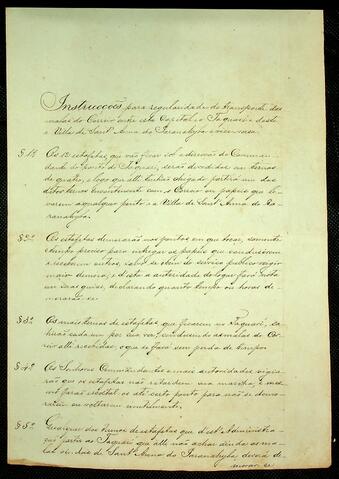 Instrucções para regularidade do transporte das
malas do Correio entre esta Capital e o Taquari e deste
a Villa de Sant'Anna do Paranahyba e vice versa.
§ 1º Os 12 estafetas, que vão ficar sob a direcção do Comman-
dante do ponto de Taquari, serão divididos em turmas
de quatro, e logo que alli tenhão chegado partirá um das
ditas turmas com o Correio ou papeis que le-
varem a qualquer ponto e a Villa de Sant'Anna do Pa-
ranahyba.
§ 2º Os estafetas demorarão nos pontos em que tocar, somente
o tempo preciso para entregar os papeis que conduzirem
e receberem outros, salvo se o bem do serviço publico exigir
maior demora; e disto a autoridade do lugar fará nota
em suas guias, declarando quanto tempo ou horas de-
morarão-se.
§ 3º As mais turmas de estafetas que ficarem no Taquari, sa-
hirão cada um por sua vez, conduzindo as malas do Cor-
reio alli recebidas, o que se fará sem perda de tempo.
§ 4º Os Senhores Commandantes e mais autoridades vigia-
rão que os estafetas não retardem sua marcha, e mes-
mo farão até certo ponto para não se demo-
rarem ou voltarem
§ 5º Qualquer das turmas de estafetas que d'esta Administra-
ção partir ao Taquari que alli não achar ainda as ma-
las vindas de Sant'Anna do Paranahyba, deverá de-
morar-se